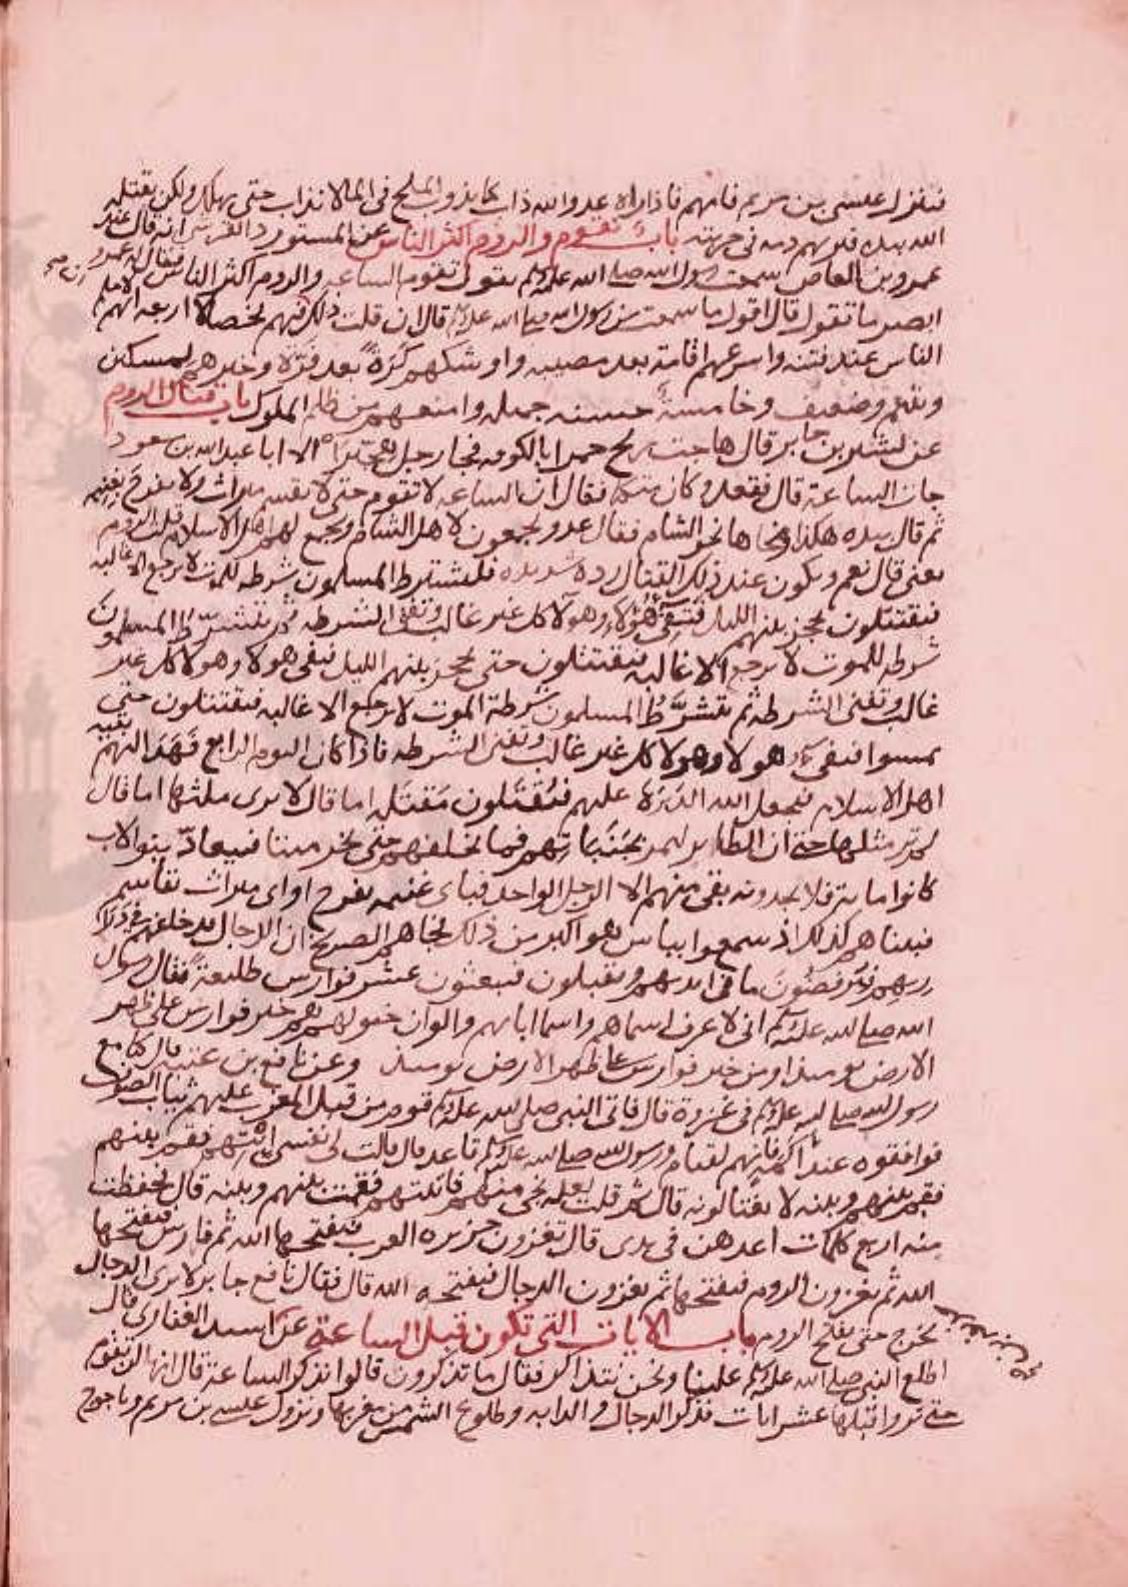 فينزل عيسى بن مريم فامهم فاذا راه عدو الله ذاب كما يذوب الملح في الما لانذاب حتى يهلك ولكن يقتله
الله بيده فيريهم دمه في حربته باب تقوم والروم اكثر الناس عن المستورد القرشي انه قال عند
عمرو بن العاص سمعت رسول الله صلى الله عليه وسلم يقول تقوم الساعه والروم اكثر الناس فقال له عمرو
ابصر ما تقول قال اقول ما سمعت من رسول الله صلى الله عليه وسلم قال ان قلت ذلك فيهم لخصالا اربعه انهم لاحلم
الناس عند فتنه واسرعهم افاقة بعد مصيبه واوشكهم كرة بعد فرة وخيرهم لمسكين
ويتيم وضعيف وخامسة حسنه جميله وامنعهم من ظلم الملوك باب قتال الروم
عن يسير بن جابر قال هاجت ريح حمرا بالكوفه فجا رجل ليس له هجيرا الا يا عبد الله بن مسعود
جات الساعة قال فقعد وكان متكيا فقال ان الساعه لا تقوم حتى لا يقسم ميراث ولا يفرح بغنيمه
ثم قال بيده هكذا ونحاها نحو الشام فقال عدو يجمعون لاهل الشام ويجمع لهم اهل الاسلام قلت الروم
تعني قال نعم ويكون عند ذلك القتال رده شديده فيشترط المسلمون شرطه للموت لا ترجع الا غالبه
فيقتتلون حتى يحجز بينهم الليل فيفي هؤلاء وهولا كل غير غالب وتفنى الشرطه ثم يتشرط المسلمون
شرطه للموت لا ترجع الا غالبه فيقتتلون حتى يحجز بينهم الليل فيفي هولا وهولا كل غير
غالب وتفنى الشرطه ثم يتشرط المسلمون شرطة الموت لا ترجع الا غالبه فيقتتلون حتى
يمسوا فيفي هولا وهولا كل غير غالب وتفنى الشرطه فاذا كان اليوم الرابع نهد اليهم بقيه
اهل الاسلام فيجعل الله الدبرة عليهم فيقتتلون مقتله اما قال لا يرى مثلها اما قال
لم ير مثلها حتى ان الطاير ليمر بجنباتهم فما يخلفهم حتى يخر ميتا فيتعاد بنو الاب
كانوا مايه فلا يجدونه بقي منهم الا الرجل الواحد فباي غنيمه يفرح او اي ميراث يقاسم
فبينا هم كذلك اذ سمعوا بباس هو اكبر من ذلك فجاهم الصريخ ان الدجال قد خلفهم في ذرا
ريهم فيرفضون ما في ايديهم ويقبلون فيبعثون عشر فوارس طليعة فقال رسول
الله صلى الله عليه وسلم اني لاعرف اسماهم واسما ابايهم والوان خيولهم هم خير فوارس على ظهر
الارض يوميذ او من خير فوارس على ظهر الارض يوميذ وعن نافع بن عتبه قال كنا مع
رسول الله صلى الله عليه وسلم في غزوة قال فاتى النبي صلى الله عليه وسلم قوم من قبل المغرب عليهم ثياب الصوف
فوافقوه عند اكمة فانهم لقيام ورسول الله صلى الله عليه وسلم قاعد قال قالت لي نفسي ائتهم فقم بينهم
فقم بينهم وبينه لا يغتالونه قال ثم قلت لعله نجي معهم فاتيتهم فقمت بينهم وبينه قال فحفظت
منه اربع كلمات اعدهن في يدي قال تغزون جزيره العرب فيفتحها الله ثم فارس فيفتحها
الله ثم تغزون الروم فيفتحها ثم تغزون الدجال فيفتحه الله قال فقال نافع جابر لا نرى الدجال
يخرج حتى يفتح الروم باب الايات التي تكون قبل الساعة عن اسيد الغفاري قال
اطلع النبي صلى الله عليه وسلم علينا ونحن نتذاكر فقال ما تذكرون قالوا نذكر الساعة قال انها لن تقوم
حتى تروا قبلها عشر ايات فذكر الدجال والدابه وطلوع الشمس من مغربها ونزول عيسى بن مريم وياجوج